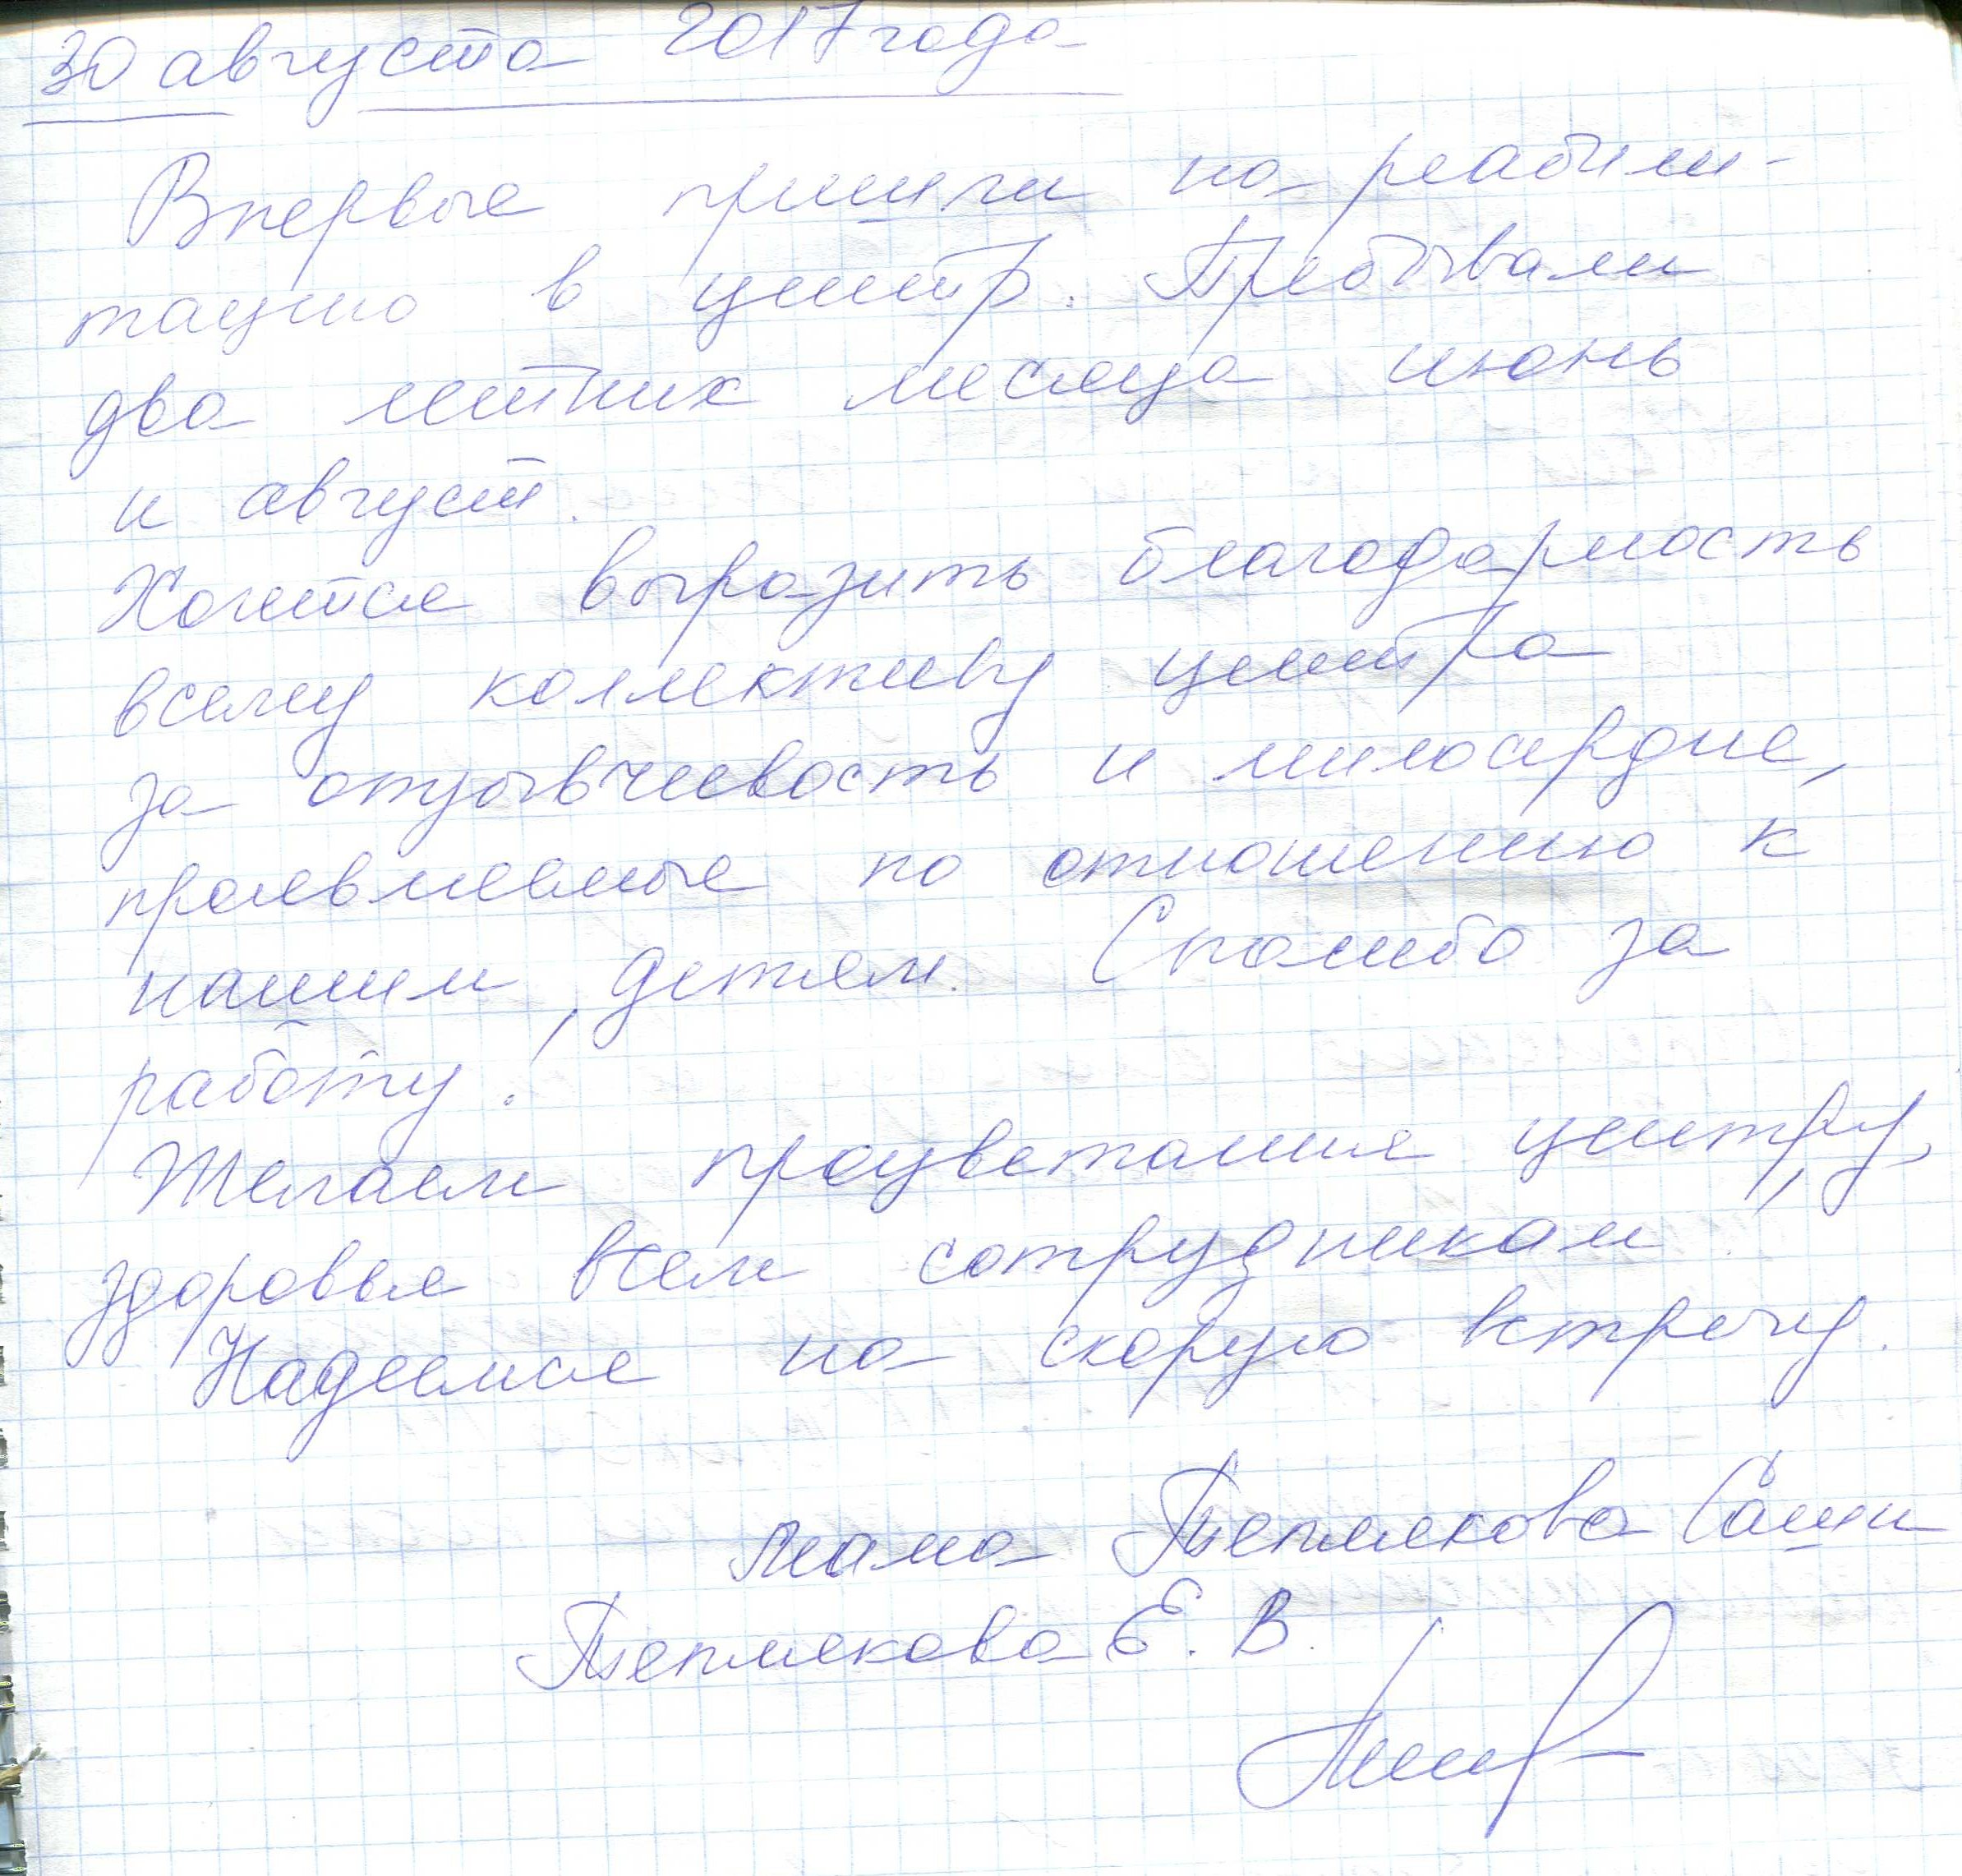 30 августа 2017 года
Впервые пришли на реабили-
тацию в центр. Пребывали
два летних месяца июнь
и август.
Хочется выразить благодарность
всему коллективу центра
за отзывчивость и милосердие,
проявляемые по отношению к
нашим детям. Спасибо за
работу!
Желаем процветания центру,
здоровья всем сотрудникам!
Надеемся на скорую встречу.
мама Теплякова Саши
Теплякова Е. В.